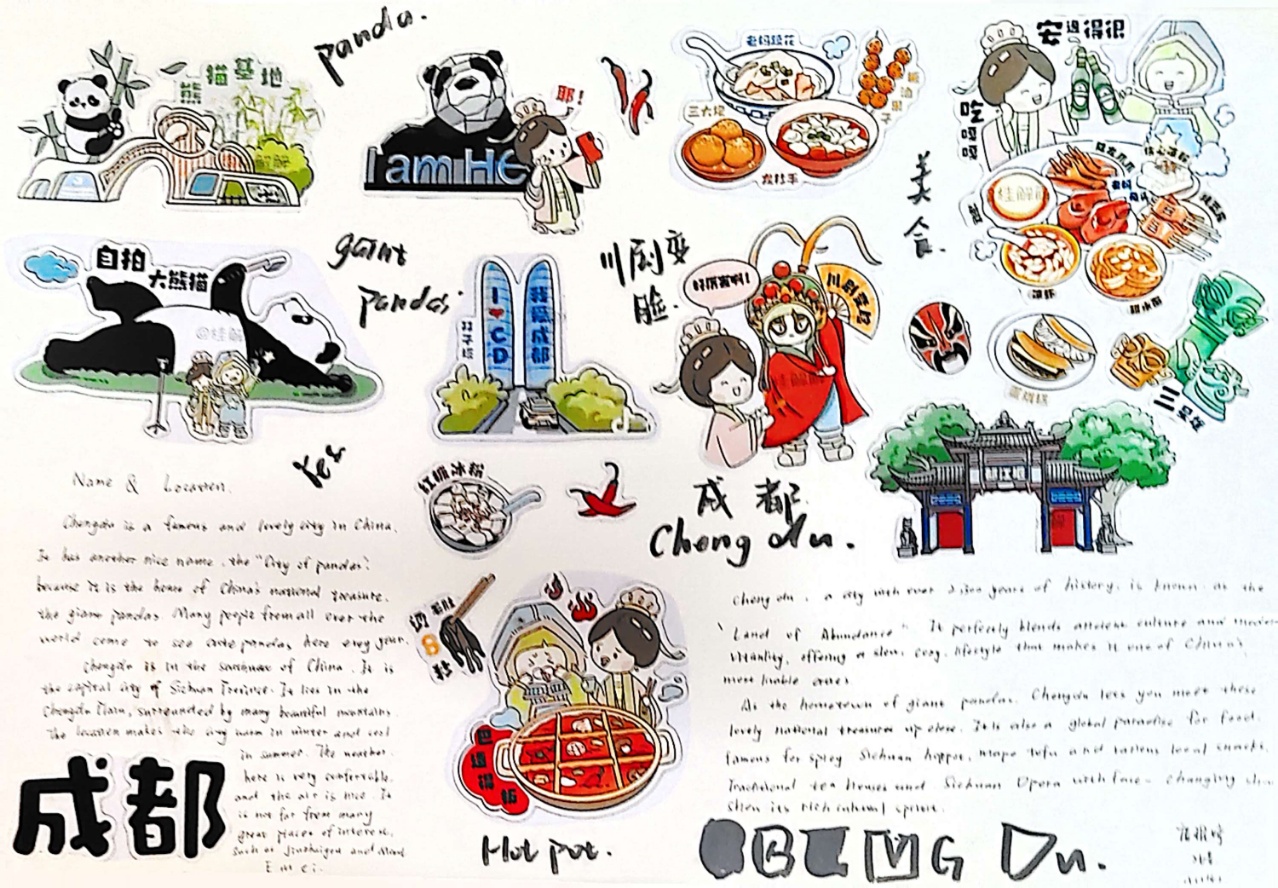 panda.
熊猫基地
I am HE
耶!
老妈蹄花
三大炮
糖油果子
安逸得很
吃嘎嘎
美食.
自拍
大熊猫
@桂解
giant
panda.
双子塔
I ❤ CD
我爱成都
川剧变
脸.
好厉害啊!
川剧变脸
凉虾
甜水面
蛋烘糕
三星堆
Yes
红糖冰粉
成都
Chengdu.
Name & Location.
Chengdu is a famous and lovely city in China.
It has another nice name, the "City of pandas".
because it is the home of China's national treasure.
the giant pandas. Many people from all over the
world come to see cute pandas here evey year.
Chengdu is in the southwest of China. It is
the capital city of Sichuan Province. It lies in the
Chengdu Plain, surrounded by many beautiful mountains.
The location makes the city warm in winter and cool
in summer. The weather
here is very comfortable.
and the air is nice. It
is not far from many
great places of interest,
such as Jiuzhaigou and Mount
Emei.
成都
Hot pot.
Chengdu, a city with over 2300 years of history, is known as the
"Land of Abundance". It perfectly blends ancient culture and modern
vitality, offering a slow, cozy, lifestyle that makes it one of China's
most livable cities
As the hometown of giant pandas. Chengdu lets you meet these
lovely national treasures up close. It is also a global paradise for food.
famous for spicy Sichuan hotpot, mapo tofu and various local snacks.
Traditional tea houses and Sichuan Opera with face-changing
show its rich cultural spirit.
G Du.